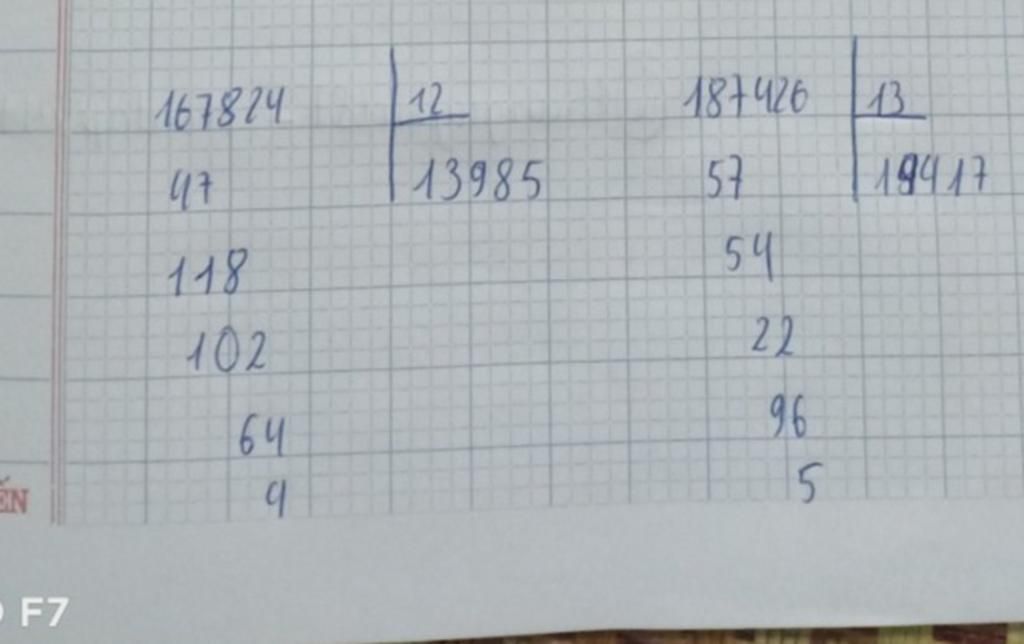 167824 12
47 13985
118
102
64
4
187426 13
57 14417
54
22
96
5
ẾN
F7